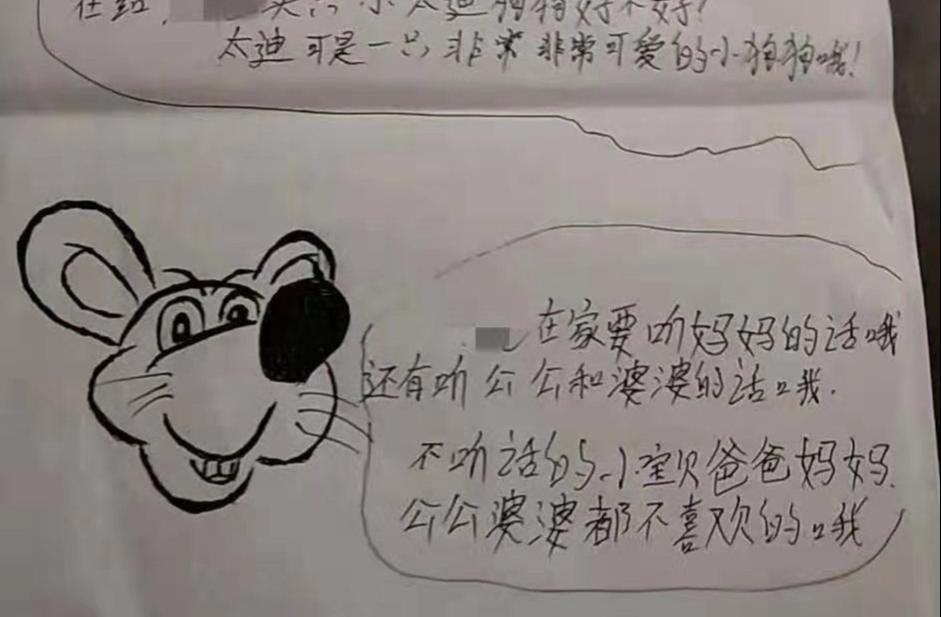 太迪狗狗好不好!
太迪可是一只非常非常可爱的小狗狗哦!
在家要听妈妈的话哦
还有听公公和婆婆的话哦.
不听话的小宝贝爸爸妈妈.
公公婆婆都不喜欢的哦